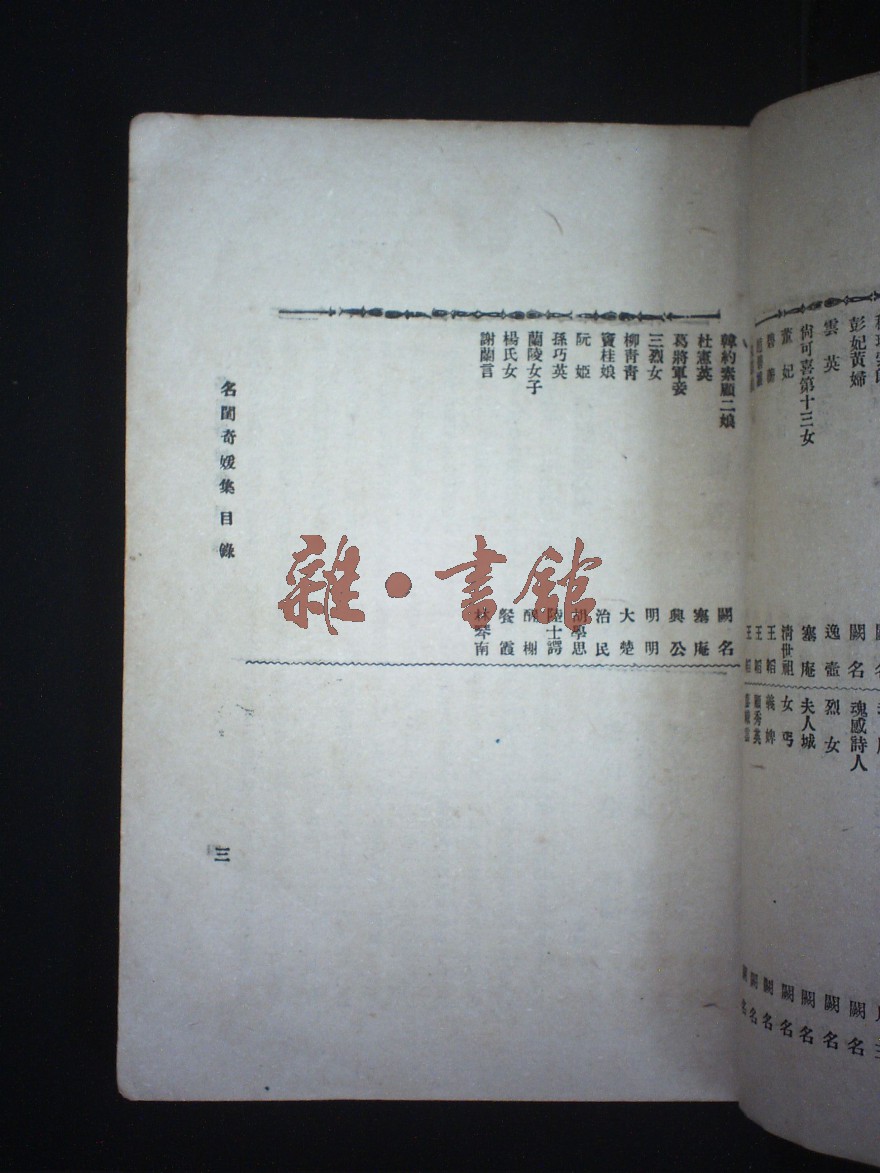 彭妃黃婦 闕名
雲英
尙可喜第十三女 塞庵
董妃 清世祖
王韜
王韜
魂感詩人 闕名
烈女 闕名
夫人城 闕名
女丐 闕名
義婢 闕名
韓約素顧二娘 闕名
杜憲英 塞庵
葛將軍妾 興公
三烈女 明明
柳靑靑 大楚
竇桂娘 治民
阮姬 胡學思
孫巧英 陸士諤
蘭陵女子
楊氏女 餐霞
謝蘭言 林琴南
名閨奇媛集 目錄
三
雜·書館